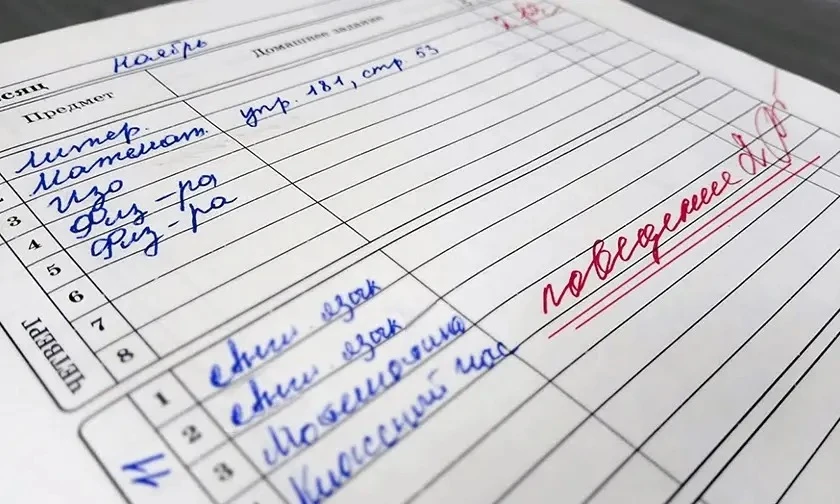 Месяц Ноябрь
Предмет Домашнее задание
Литер.
Математ. упр. 181, стр 53
3 Изо
4 Физ-ра
5 Физ-ра
6
7
8
ЧЕТВЕРГ
поведение 2
1 Англ. язык
2 Англ. язык
3 Математика
Классный час
11